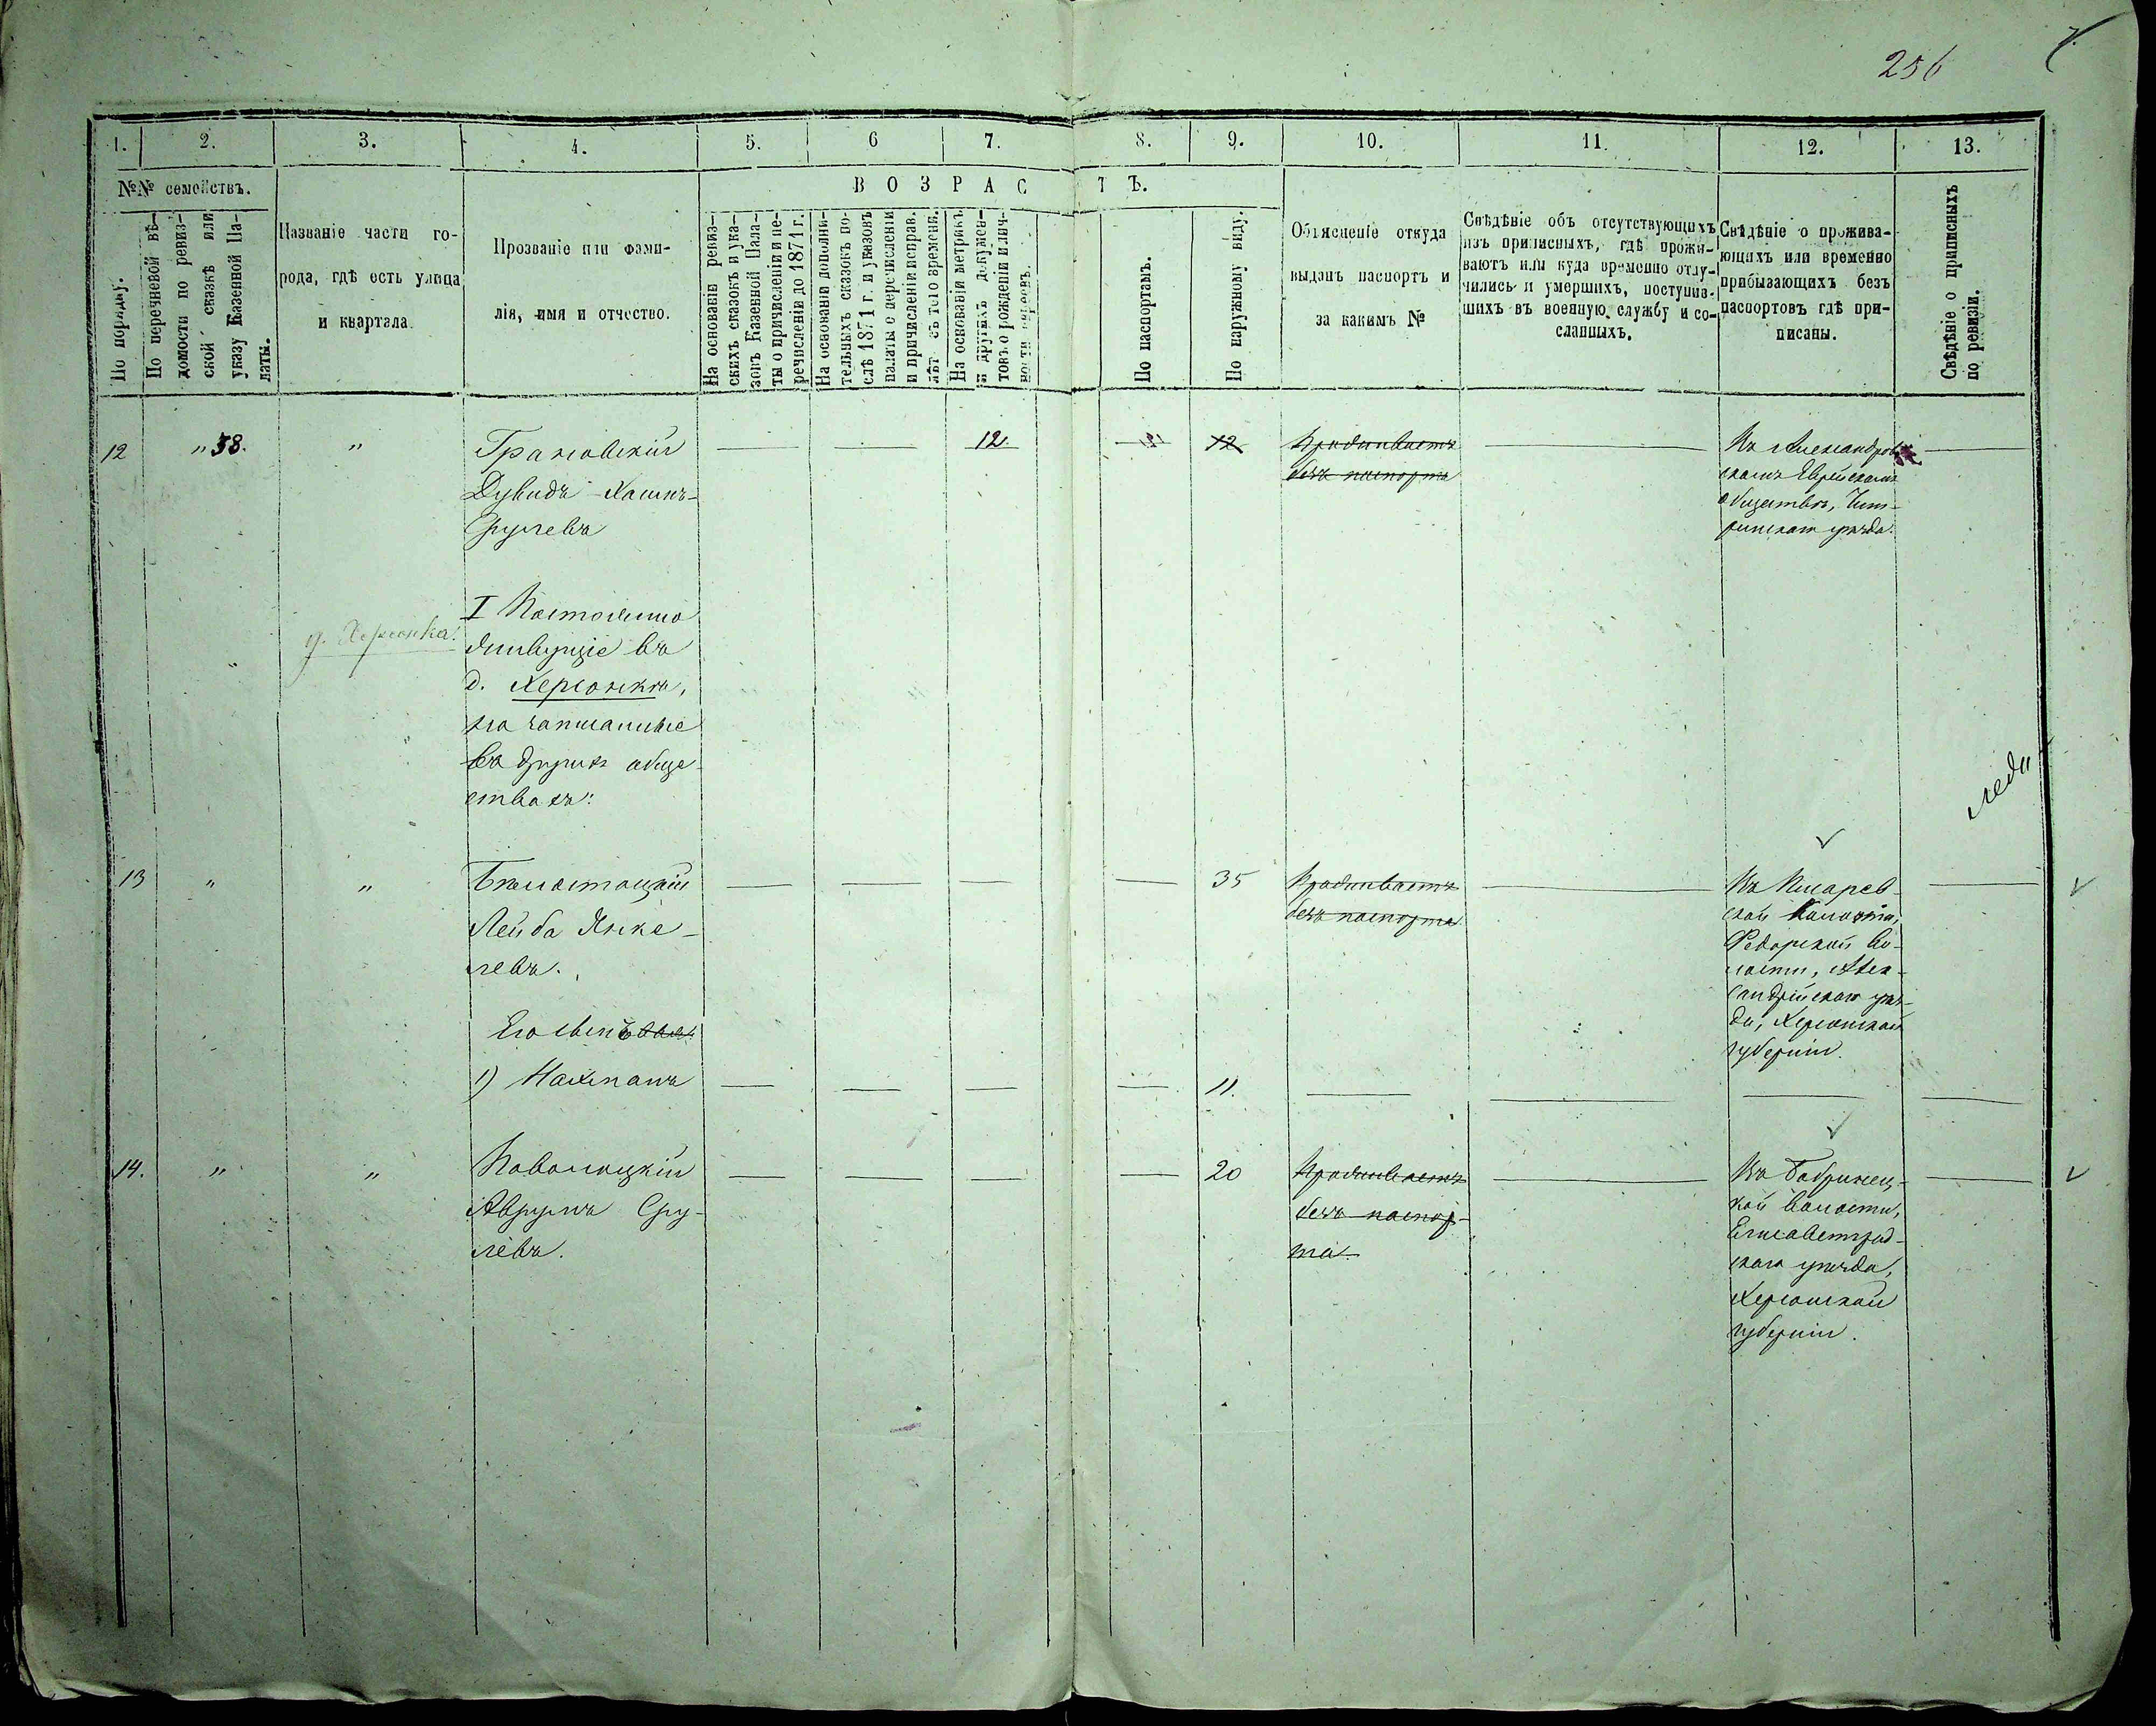 256
1.
2.
3.
4.
5.
6
7.
8.
9.
10.
11.
12.
13.
№№ семействъ.
По порядку.
По перечневой вѣ-
домости по ревиз-
ской сказкѣ или
указу Казенной Па-
латы.
Названіе части го-
рода, гдѣ есть улица
и квартала.
Прозваніе или фами-
лія, имя и отчество.
ВОЗРАСТЪ.
На основаніи ревиз-
скихъ сказокъ и ука-
зовъ Казенной Пала-
ты о причисленіи и пе-
речисленіи до 1871 г.
На основаніи дополни-
тельныхъ сказокъ по-
слѣ 1871 г. и указовъ
палаты о перечисленіи
и причисленіи исправ.
лѣт съ того времени.
На основаніи метрикъ
и другихъ докумен-
товъ о рожденіи и лич-
По паспортамъ.
По наружному виду.
Объясненіе откуда
выданъ паспортъ и
за какимъ №
Свѣдѣніе объ отсутствующихъ
изъ приписныхъ, гдѣ прожи-
ваютъ или куда временно отлу-
чились и умершихъ, поступив-
шихъ въ военную службу и со-
сланныхъ.
Свѣдѣніе о прожива-
ющихъ или временно
прибывающихъ безъ
паспортовъ гдѣ при-
писаны.
Свѣдѣніе о приписныхъ
по ревизіи.
12 " 58. " Грановскій — — 12. — 12 Проживаетъ — Въ Александров-
Дувидъ Хаимъ- безъ паспорта скомъ Еврейскомъ
Срулевъ обществѣ, Чиги-
ринскаго уѣзда.
д. Херсонка.
I Постоянно
живущіе въ
д. Херсонкѣ,
но записанные
въ другихъ обще-
ствахъ:
13 " " Бѣлостоцкій — — — — 35 Проживаетъ — Въ
Лейба Янке- безъ паспорта ской
левъ. Федорской во-
лости, Алек-
сандрійскаго уѣз-
да, Херсонской
губерніи.
Его сынъ
1) Нахманъ — — — — 11. — — — —
14. " " Наволоцкій — — — — 20 Проживаетъ — Въ Бобринец-
Аврумъ Сру- безъ паспор- кой волости,
левъ. та Елисаветград-
скаго уѣзда,
Херсонской
губерніи.